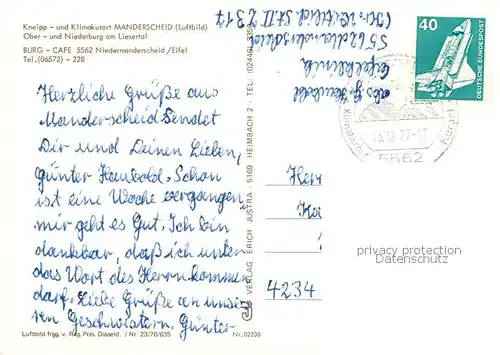 Kneipp - und Klimakurort MANDERSCHEID (Luftbild)
Ober - und Niederburg am Liesertal
BURG - CAFE 5562 Niedermanderscheid /Eifel
Tel. (06572) - 228
Herzliche Grüße aus
Manderscheid Sendet
Dir und Deinen Lieben,
Günter Haubold. Schon
ist eine Woche vergangen,
mir geht es Gut. Ich bin
dankbar, daß ich unter
das Wort des Herrn kommen
darf. Liebe Grüße an unse
ren Geschwistern. Günter
Luftbild frg. v. Reg. Präs. Düsseld. / Nr. 23/70/635
Nr. 02238
VERLAG ERICH JUSTRA - 5169 HEIMBACH 2 - TEL. (02446) 3359
Eifelklinik
5562 Manderscheid
40
DEUTSCHE BUNDESPOST
Klimatischer Kurort
13.12.77-17
5562
Herr
4234
privacy protection
Datenschutz